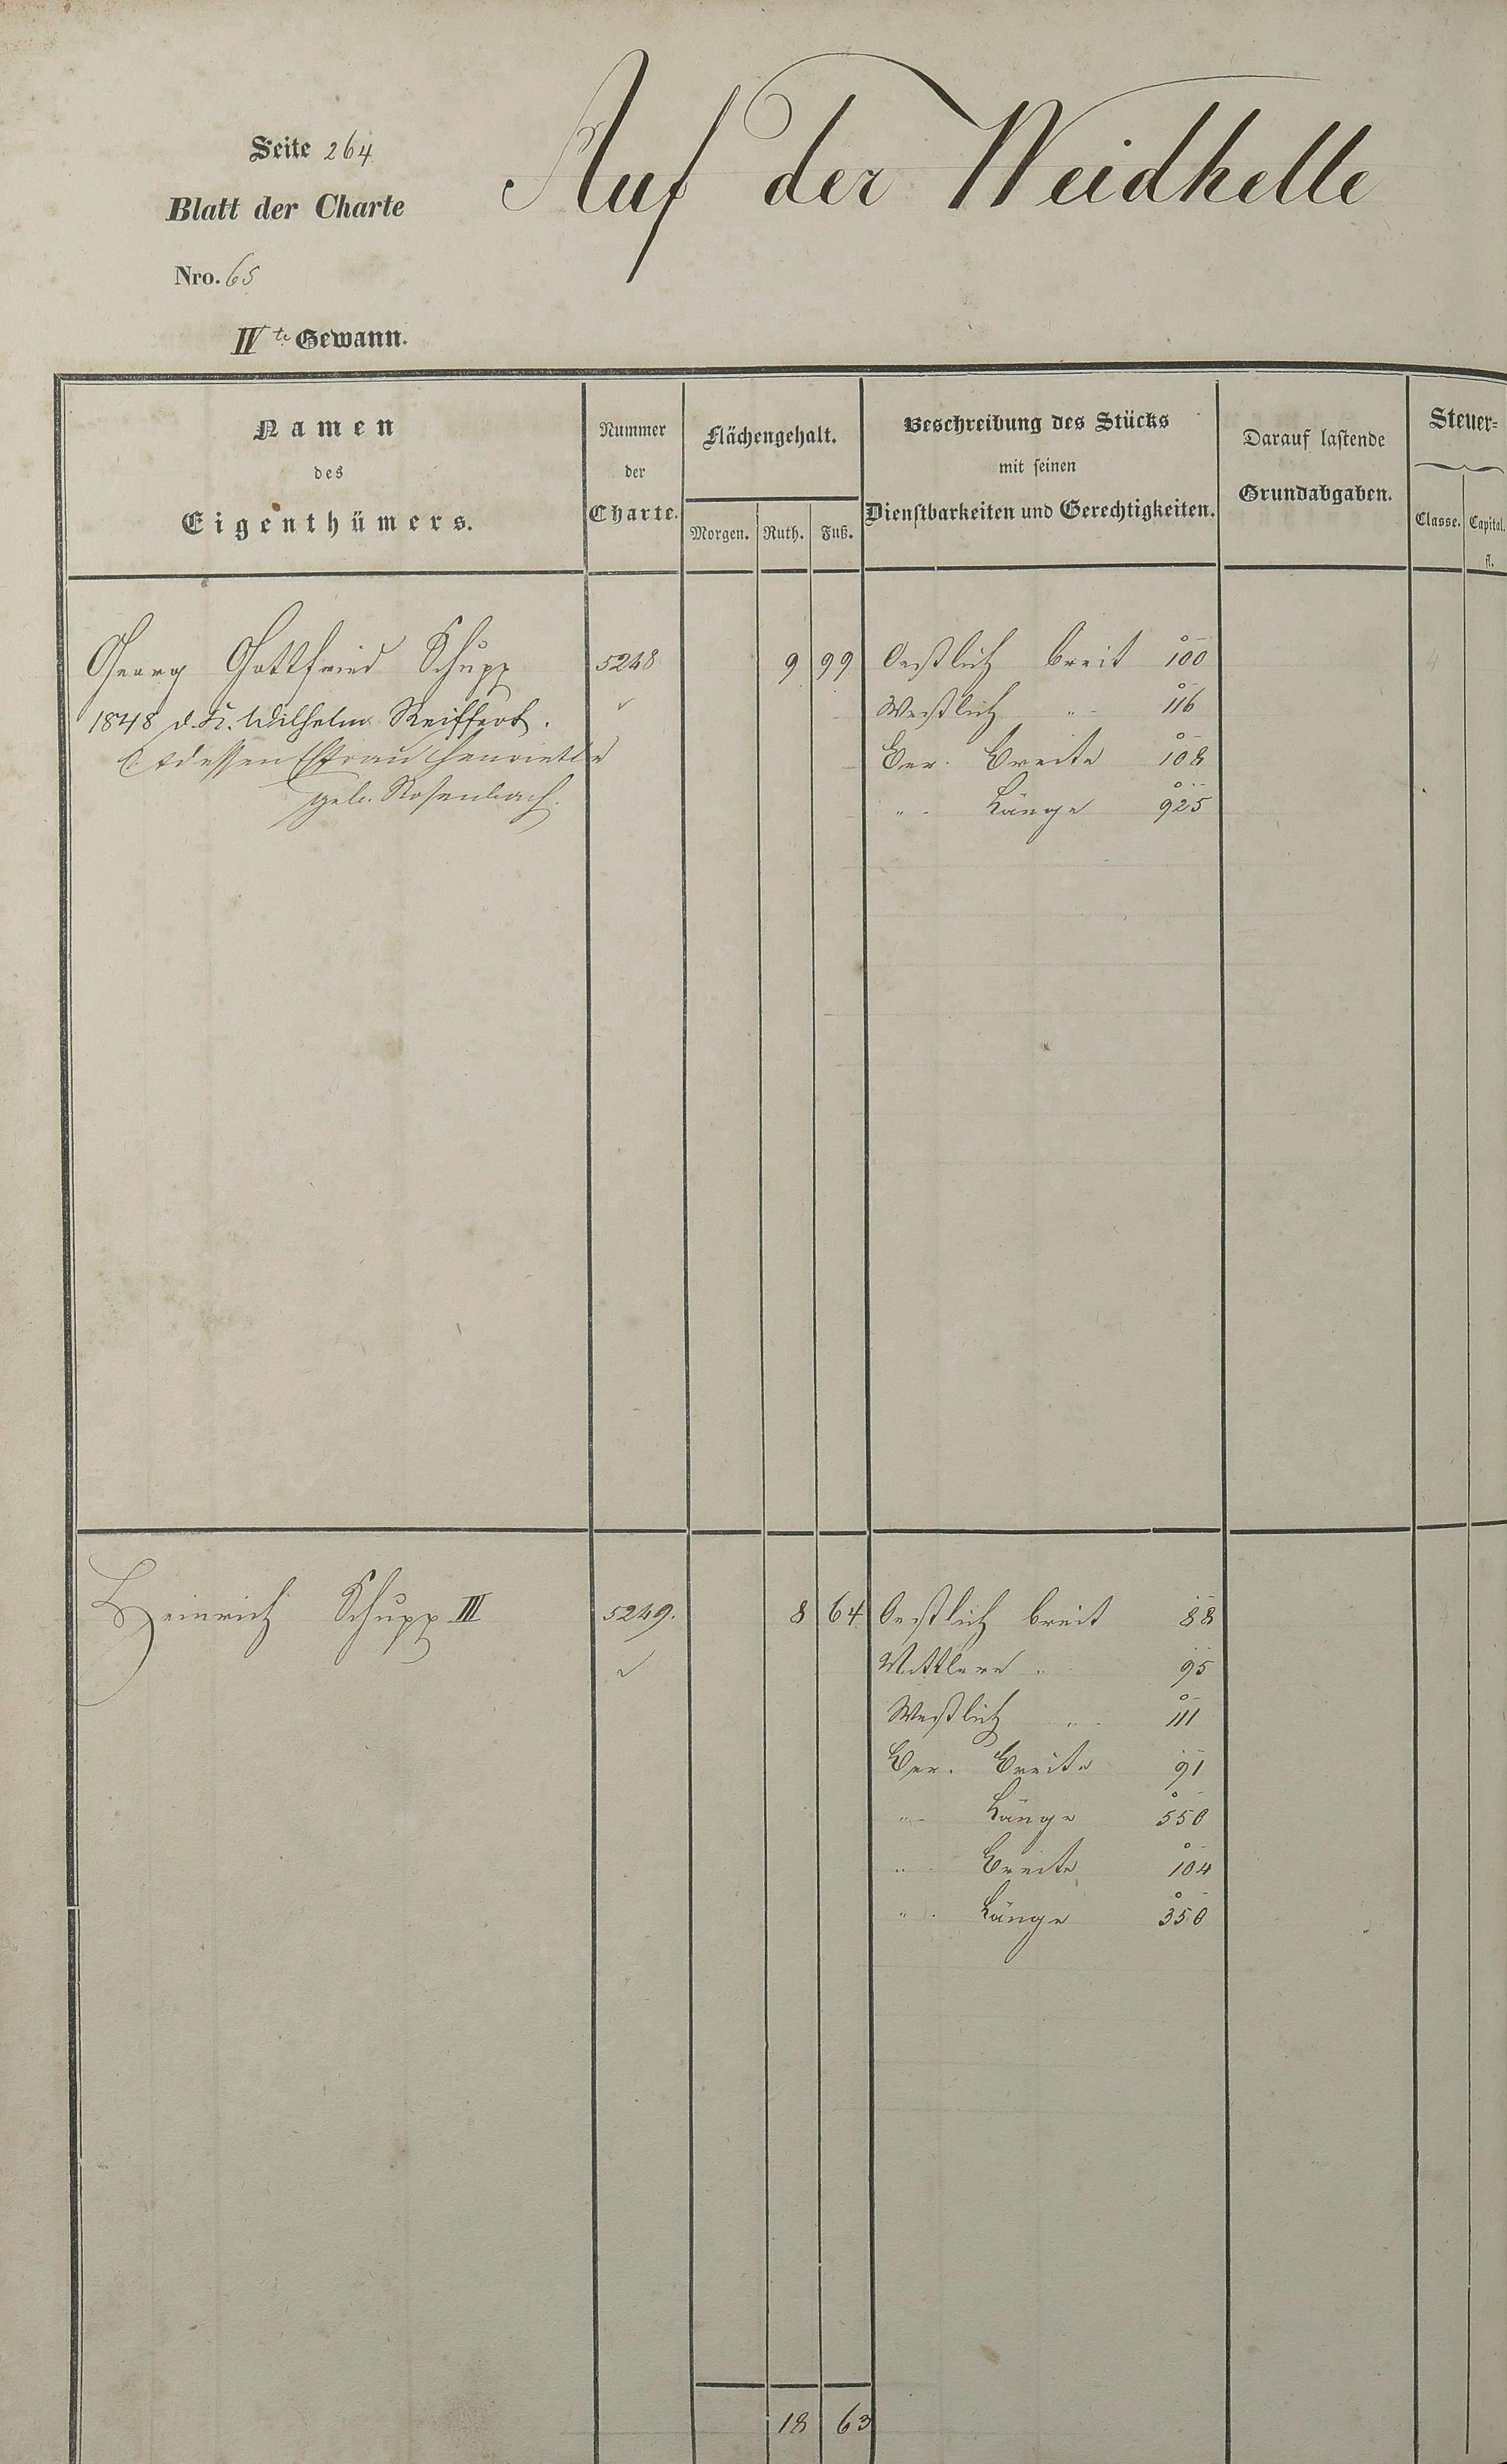 Seite 264
Auf der Weidhelle
Blatt der Charte
Nro. 65
IVte Gewann.
Namen
des
Eigenthümers.
Nummer
der
Charte.
Flächengehalt.
Morgen. Ruth. Fuß.
Beschreibung des Stücks
mit seinen
Dienstbarkeiten und Gerechtigkeiten.
Darauf lastende
Grundabgaben.
Steuer-
Classe. Capital.
fl.
Georg Gottfried Schupp 5248 9 99 Oestlich breit 100
1848 d. K. Wilhelm Reiffert. Westlich " 116
dessen Ehfrau Henriette Ver. Breite 108
geb. Rosenbach. " Länge 925
Heinrich Schupp III 5249. 8 64 Oestlich breit 88
Mittlere " 95
Westlich " 111
Ver. Breite 91
" Länge 550
" Breite 104
" Länge 350
18 63